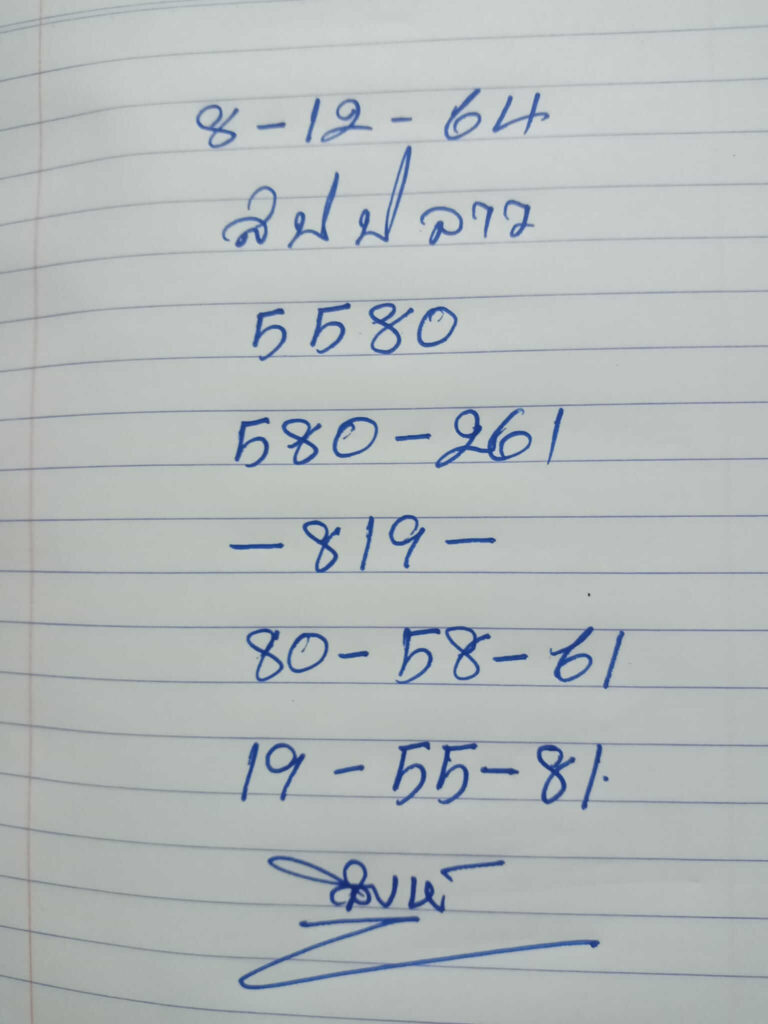 8-12-64
สปปลาว
5580
580-261
-819-
80-58-61
19-55-81.